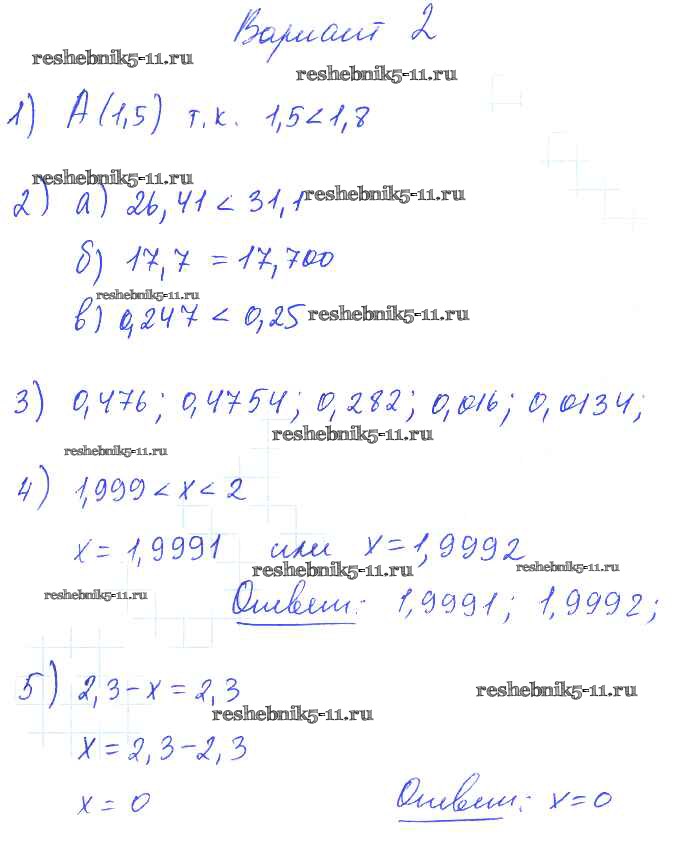 Вариант 2
reshebnik5-11.ru
reshebnik5-11.ru
1) А(1,5) т.к. 1,5<1,8
reshebnik5-11.ru
2) а) 26,41 < 31,1 reshebnik5-11.ru
б) 17,7 = 17,700
reshebnik5-11.ru
в) 0,247 < 0,25 reshebnik5-11.ru
3) 0,476; 0,4754; 0,282; 0,016; 0,0134;
reshebnik5-11.ru
reshebnik5-11.ru
4) 1,999 < x < 2
x = 1,9991 или x = 1,9992
reshebnik5-11.ru reshebnik5-11.ru
reshebnik5-11.ru
Ответ: 1,9991; 1,9992;
5) 2,3 - x = 2,3
reshebnik5-11.ru
reshebnik5-11.ru
x = 2,3 - 2,3
x = 0 Ответ: x = 0